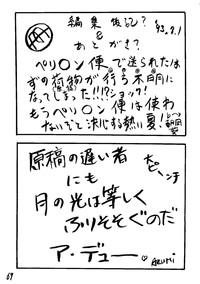 編集後記?
&
あとがき?
'93.9.1
ペリ〇ン便で送られたは
ずの荷物が行ち不明に
なってしまった!!!?ショック!
もうペリ〇ン便は使わ
ないぞと決心する熱い夏!
原稿の遅い者
にも
月の光は等しく
ふりそそぐのだ
ア・デュー
AZUMI
69